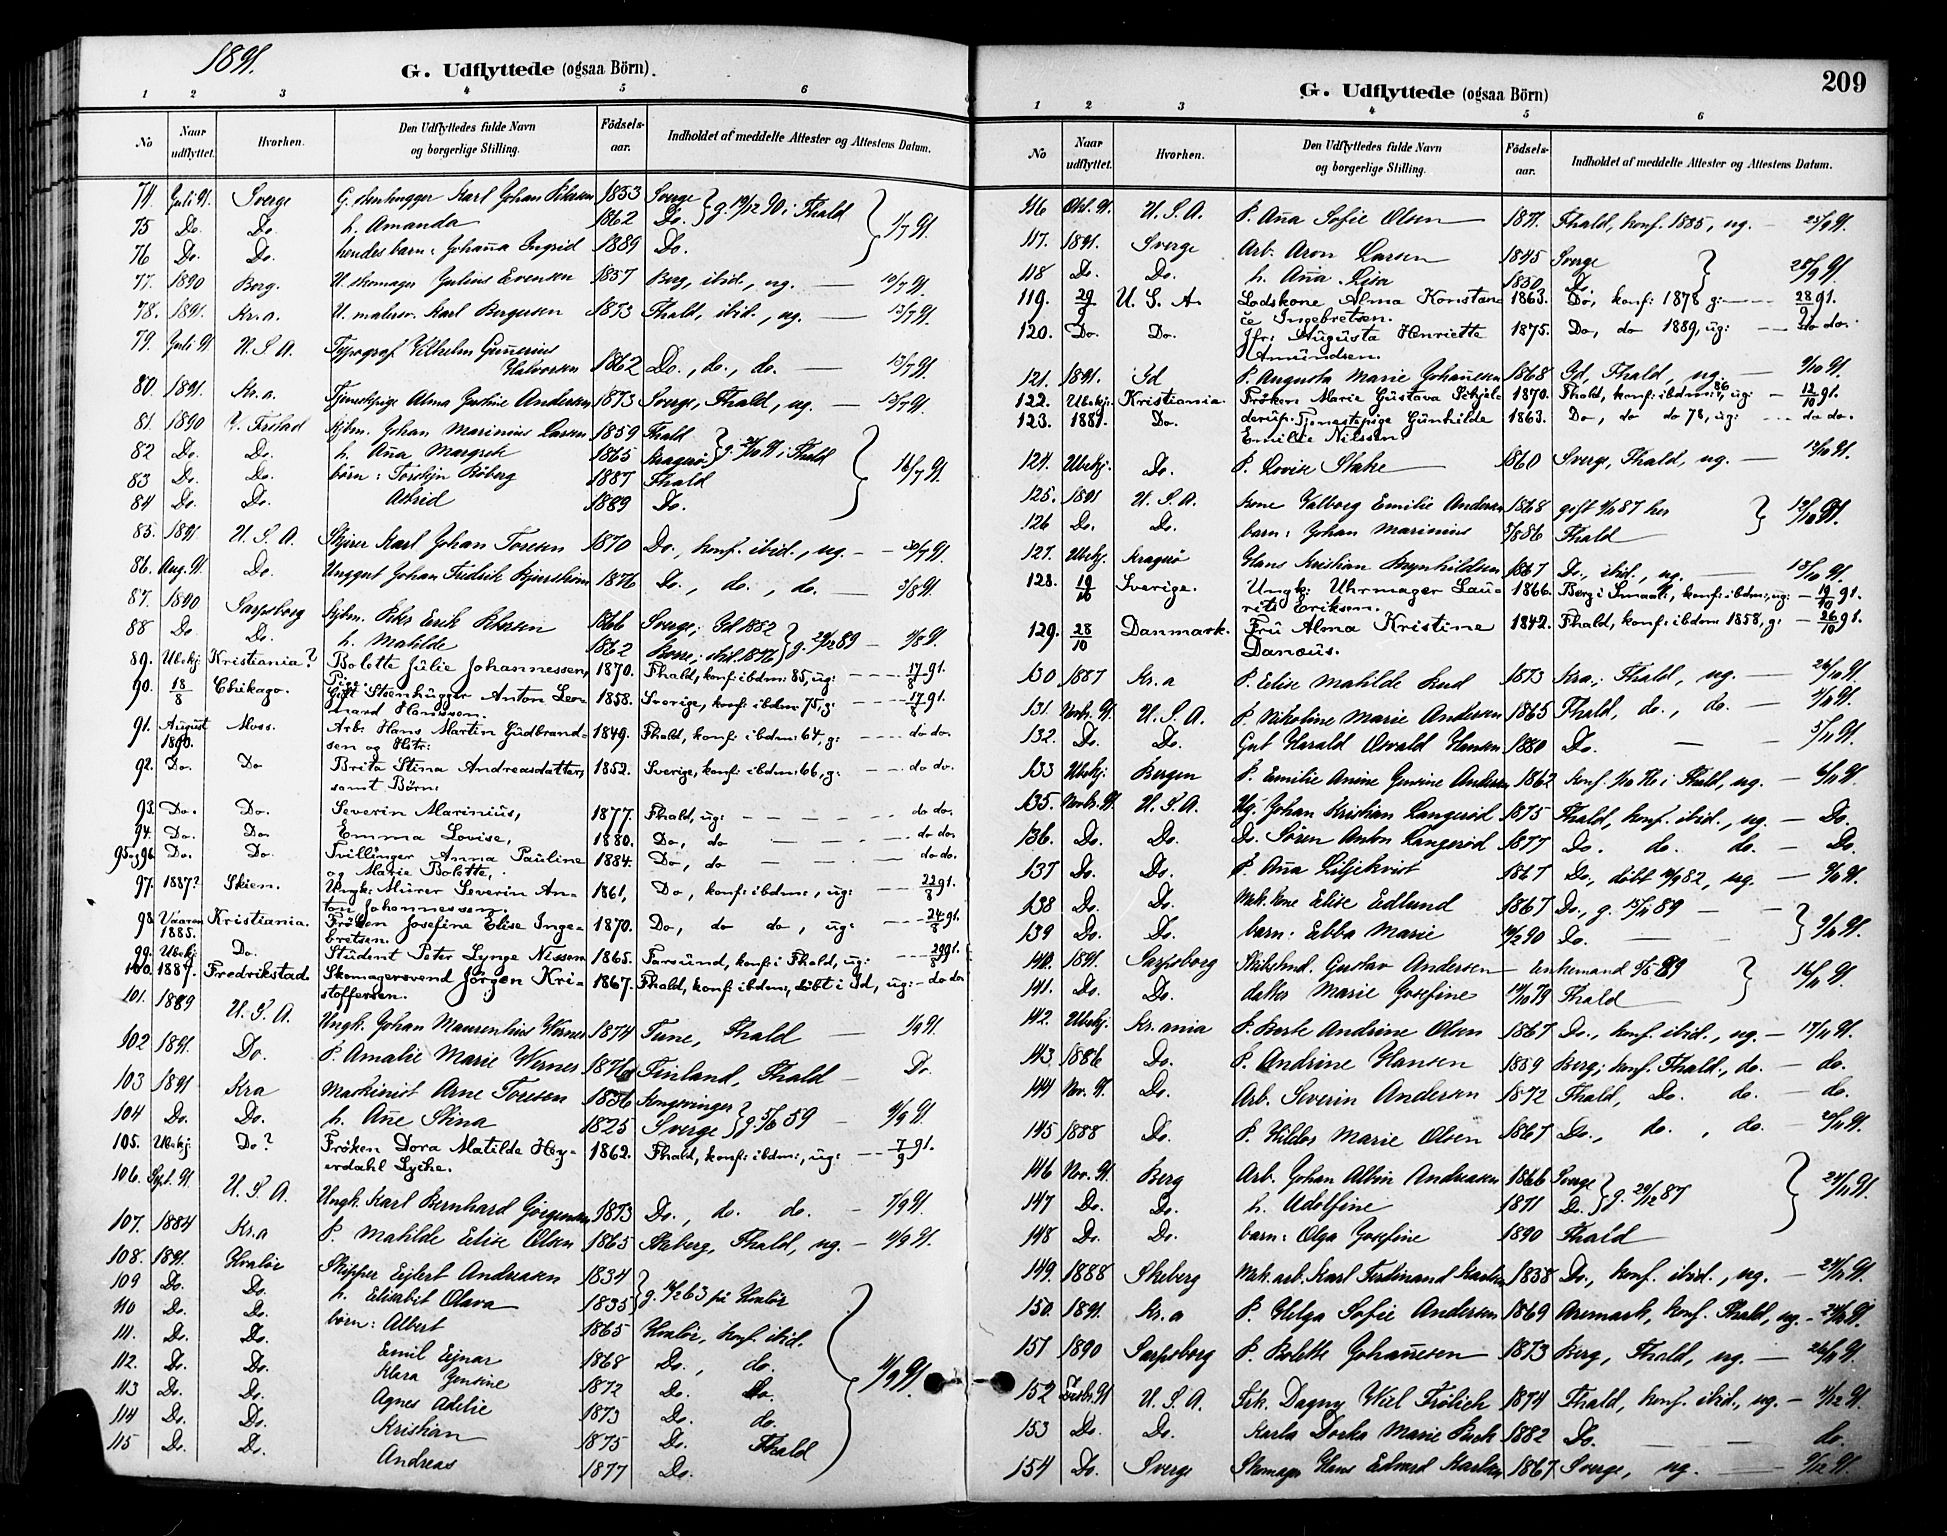 1891.
G. Udflyttede (ogsaa Börn).
1 2 3 4 5 6
No Naar udflyttet. Hvorhen. Den Udflyttedes fulde Navn og borgerlige Stilling. Födsels-aar. Indholdet af meddelte Attester og Attestens Datum.
74. Juli 91. Sverge G. stenhugger Karl Johan 1853 Sverge } g. 19/12 90 i Fhald
75 Do. Do. h. Amanda 1862 Do. 1/7 91.
76 Do. Do. hendes barn: Johanna Ingrid 1889 Do.
77. 1890 Berg. U. skomager Julius Evensen 1857 Berg, ibid., ug. — 10/7 91.
78. 1891. Kr.a. U. maler. Karl Bergersen 1873 Fhald, ibid., ug. — 13/7 91.
79. Juli 91 U.S.A. Typograf Vilhelm Gunerius
Halvorsen 1862 Do., do., do. — 13/7 91.
80. 1891. Kr.a. Tjenestepige Alma Justine Andersen 1873 Sverge, Fhald, ug. — 15/7 91.
81. 1890 Kjbm. Johan Marinius Larsen 1859 Fhald
82 Do. Do. h. Anna Margrete 1865 Kragerø } i Fhald
83 Do. Do. börn: Torstejn Röberg 1887 Fhald 16/7 91.
84 Do. Do. Astrid 1889 Do.
85. 1891. U.S.A. Skjirer Karl Johan Toresen 1870 Do., konf. ibid., ug. — 30/7 91.
86. Aug. 91. Do. Unggut Johan Fredrik 1876 Do., do., do. — 3/8 91.
87. 1890 Sarpsborg Kjbm. Peter Erik Petersen 1866 Sverge; Id 1882
88 Do. Do. h. Matilde 1862 ibid. 1876 } g. 29/12 89 — 7/8 91.
89. Ubekj. Kristiania? Bolette Julie Johannessen, 1870. Fhald, konf: ibdm: 85, ug: — 17/8 91.
Pige.
90. 18/8 Chikago. Gift Steenhugger Anton Leo- 1858. Sverige, konf: ibdm: 75, g: — 17/8 91.
nard Hanssen.
91. August Moss. Arb: Hans Martin Gudbrand- 1849. Fhald, konf: ibdm: 64, g: — do do.
1890. sen og Hstr:
92. Do. Do Brita Stina Andreasdatter, 1852. Sverige, konf: ibdm: 66, g: — do do.
samt Börn:
93. Do. Do. Severin Marinius, 1877. Fhald, ug: — do do.
94. Do. Do. Emma Lovise, 1880. Do, do — do do.
95 og 96. Do. Do. Tvillinger Anna Pauline 1884. Do, do — do do.
og Marie Bolette.
97. 1887? Skien. Ungk: Murer Severin An- 1861, Do, konf: ibdm:, ug: — 22/8 91.
ton Johannessen.
98 Vaaren Kristiania. Fröken Josefine Elise Inge- 1870. Do, do do, ug: — 24/8 91.
1885. bretsen.
99. Ubekj. Do. Student Peter Lynge Nissen 1865. Farsund, konf: i Fhald, ug: — 29/8 91.
100. 1887. Fredrikstad Skomagersvend Jörgen Kri- 1867. Fhald, konf: ibdm:, döbt i Id, ug: — do do.
stoffersen.
101. 1889 U.S.A. Ungk. Johan Maurentius Wernes 1874 Tune, Fhald — 1/9 91.
102 1891. Do. P. Amalie Marie Wernes 1876 Finland, Fhald — Do.
103 1891 Kra Maskinist Arne Toresen 1836 Kongsvinger
104 Do. Do. h. Ane Stina 1825 Sverge } g. 5/6 59 9/9 91.
105. Ubekj. Do? Fröken Dora Matilde Hey- 1862. Fhald, konf: ibdm:, ug: — 7/9 91.
erdahl Lyche.
106. Sept. 91 U.S.A. Ungk. Karl Bernhard Jörgensen 1873 Do., do. do. — 7/9 91.
107. 1884 Kr.a P. Mathilde Elise Olsen 1865 Skeberg, Fhald, ug. — 11/9 91.
108. 1891. Hvalöe Skipper Ejlert Andreasen 1834
109 Do. Do. h. Elisabet Olava 1835 } g. 14/2 63 på Hvalöe
110 Do. Do. börn: Albert 1865 Hvalöe, konf. ibid.
111. Do. Do. Emil Ejnar 1868 Do., do.
112. Do. Do. Klara Jensine 1872 Do. Do. 11/9 91.
113 Do. Do. Agnes Adelie 1873 Do. do.
114 Do. Do. Kristian 1875 Do. Fhald
115 Do. Do. Andreas 1877 Do.
209
G. Udflyttede (ogsaa Börn)
1 2 3 4 5 6
No Naar udflyttet. Hvorhen. Den Udflyttedes fulde Navn og borgerlige Stilling. Födsels-aar. Indholdet af meddelte Attester og Attestens Datum.
116 Okt. 91. U.S.A. P. Ana Sofie Olsen 1871. Fhald, konf. 1885, ug. — 25/9 91.
117. 1891. Sverge Arb. Aron Larsen 1845 Sverge
118 Do. Do. h. Ana Lisa 1850 Do. } 28/9 91.
119. 29/9 U.S.A. Lodskone Alma Konstan- 1863. Do, konf: 1878 g: — 28/9 91.
ce Ingebretsen.
120. Do. Do. Jfr: Augusta Henriette 1875. Do, do 1889, ug: — do do.
Amundsen.
121. 1891. Id P. Augusta Marie Johannesen 1868 Id, Fhald, ug. — 9/10 91.
122. Ubekj. Kristiania. Fröken Marie Gustava Schjel- 1870. Fhald, konf: ibdm: 86, ug: — 12/10 91.
123. 1881. Do. derup. Tjenestepige Gunhilde 1863. Do, do do 78, ug: — do do.
Emilie Nilssen
124. Ubekj. Do. P. Lovise Stake 1860 Sverge, Fhald, ug. — 12/10 91.
125. 1891 U.S.A. Kone Valborg Emilie Andersen 1868 gift 87 her
126 Do. Do. barn: Johan Marinius 86 Fhald } 12/10 91.
127. Ubekj. Kragerö Hans Kristian Brynhildsen 1867 Do., ibid., ug. — 13/10 91.
128. 19/10 Sverige. Ungk: Uhrmager Lau- 1866. Berg i Smaal:, konf: ibdm:, ug: — 19/10 91.
rits Eriksen.
129. 28/10 Danmark. Fru Alma Kristine 1842. Fhald, konf: ibdm: 1858, g: — 26/10 91.
Danæus.
130 1887 Kr.a P. Elise Matilde Lud 1873 Kra.; Fhald, ug. — 26/10 91.
131. Novbr. 91. U.S.A. P. Nikoline Marie Andersen 1865 Fhald, do., do. —
132. Do. Do. Gut Harald Osvald Hansen 1880 Do. — 5/11 91.
133 Ubekj. Bergen P. Emilie Anine Jensine Andersen 1862 konf. i Fhald, ug. — 6/11 91.
135. Novbr. 91. U.S.A. Ug. Johan Kristian Langeröd 1875 Fhald, konf. ibid., ug. — Do.
136. Do. Do. Do. Sören Anton Langeröd 1877 Do. do. do. — Do.
137 Do. Do. P. Ana Liljekvist 1867 Do., döbt 82, ug. —
138 Do. Do. Mek. kone Elise Edlund 1867 Do., g. 15/11 89 —
139 Do. Do. barn: Ebba Marie 90 Do. —
140. 1891. Sarpsborg Skibstmd. Gustav Andersen — Enkemand 89
141. Do. Do. datter Marie Josefine 79 Fhald } 16/11 91.
142. Ubekj. Kr.ania P. Andrine Olsen 1867 Do., konf. ibid., ug. — 17/11 91.
143. 1886 Do. P. Andrine Hansen 1859 Berg; konf. Fhald., do. — do.
144 Nov. 91. Do. Arb. Severin Andersen 1872 Fhald, Do. do. — do.
145 1888 Do. P. Hilda Marie Olsen 1867 Do., do., do. — 20/11 91.
146 Nov. 91. Berg Arb. Johan Albin Andreasen 1866 Sverge
147 Do. Do. h. Adolfine 1871 Do. } g. 29/12 87 24/11 91.
148 Do. Do. barn: Olga Josefine 1890 Fhald
149. 1888 Skeberg Mek. arb. Karl Ferdinand Karlsen 1858 Do., konf. ibid., ug. — 24/11 91.
150. 1891. Kr.a P. Helga Sofie Andersen 1869 Aremark, konf. Fhald, ug. — 24/11 91.
151 1890 Sarpsborg P. Bolette Johannesen 1873 Berg, Fhald, ug. — 26/11 91.
152 Desbr. 91 U.S.A. Frk. Dagny Wiel Frölich 1874 Fhald, konf. ibid., ug. —
153 Do. Do. Karla Dorka Marie Buck 1882 Do. — do.
154 Do. Sverge Skomager Hans Edvard Karlsen 1867 Sverge, ug. — 9/12 91.